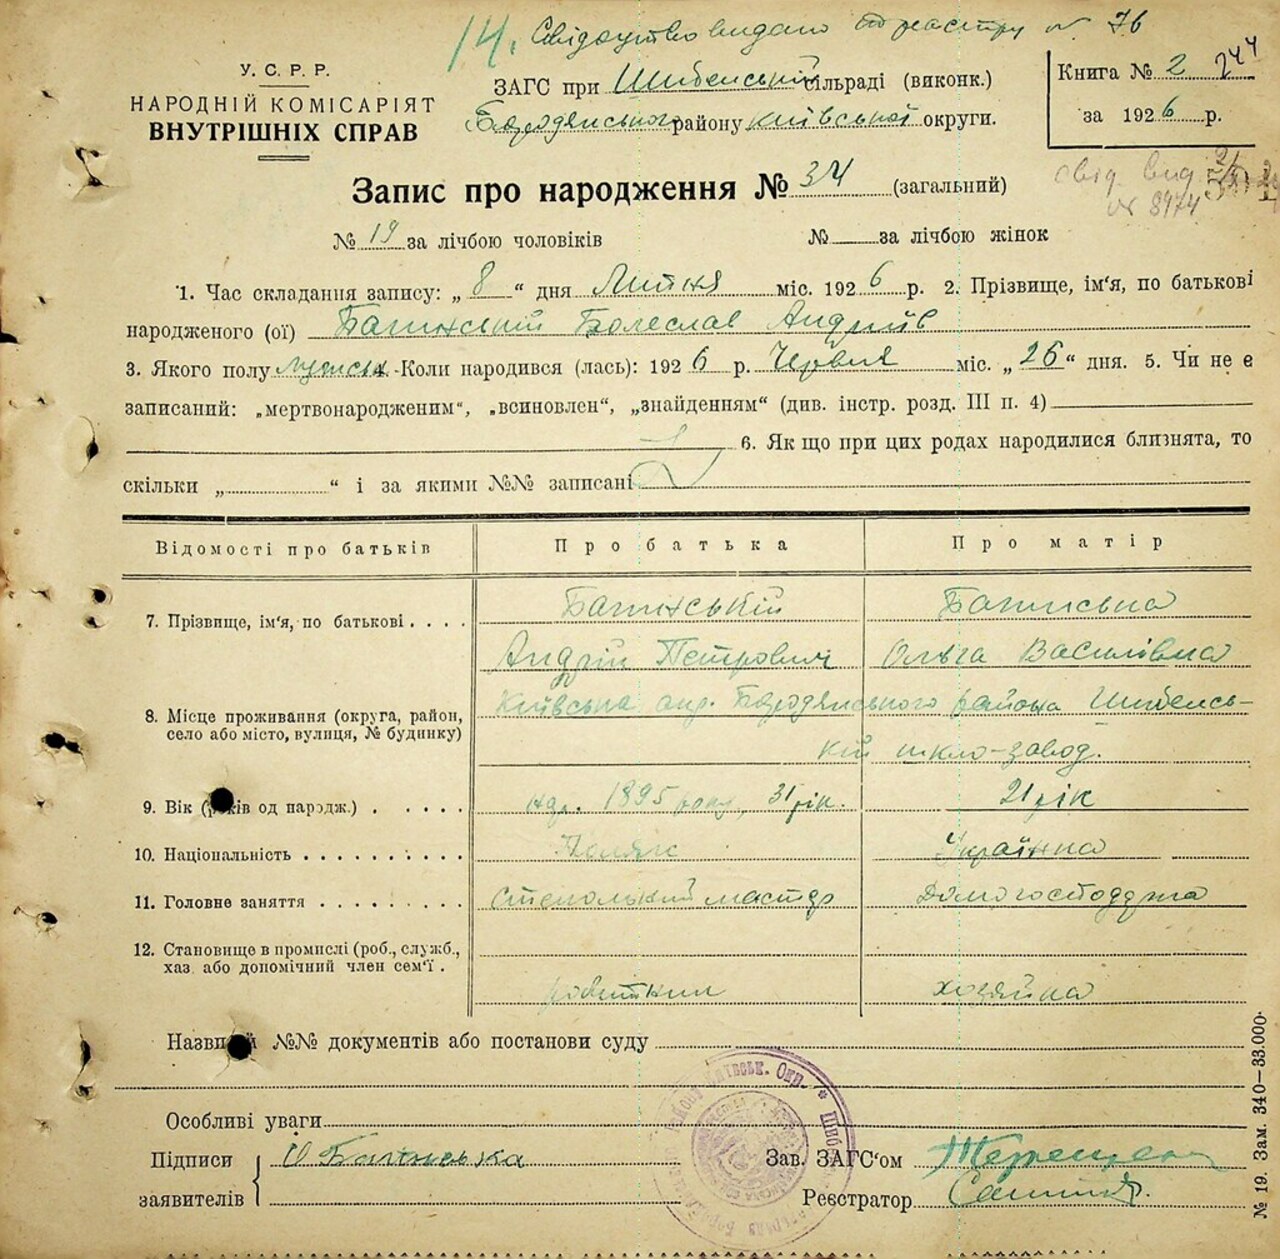 14. Свідоцтво видано по реєстру № 76
У.С.Р.Р.
НАРОДНІЙ КОМІСАРІЯТ
ВНУТРІШНІХ СПРАВ
ЗАГС при Шибенській сільраді (виконк.)
Бородянського району Київської округи.
Книга № 2 244
за 1926 р.
Запис про народження № 34 (загальний)
свід. вид.
№ 8974
№ 19 за лічбою чоловіків № за лічбою жінок
1. Час складання запису: „8“ дня Липня міс. 1926 р. 2. Прізвище, ім'я, по батькові
народженого (ої) Багинській Болеслав Андріїв
3. Якого полу мужськ. Коли народився (лась): 1926 р. Червня міс. „26“ дня. 5. Чи не є
записаний: „мертвонародженим“, „всиновлен“, „знайденням“ (див. інстр. розд. III п. 4)
6. Як що при цих родах народилися близнята, то
скільки „ “ і за якими №№ записані
Відомості про батьків Про батька Про матір
7. Прізвище, ім'я, по батькові . . . . Багинській Багинська
Андрій Петрович Ольга Василівна
8. Місце проживання (округа, район, село або місто, вулиця, № будинку) Київська окр. Бородянського района Шибенсь-
кій шкло-завод.
9. Вік (років од народж.) . . . . . 1895 року, 31 рік. 21 рік
10. Національність . . . . . . . . . . Поляк Українка
11. Головне заняття . . . . . . . . . Стекольний мастер Домогосподарка
12. Становище в промислі (роб., служб.,
хаз. або допомічний член сем'ї . робітник хозяйка
Назви й №№ документів або постанови суду
Особливі уваги
Підписи О Багінська Зав. ЗАГС'ом
заявителів Реєстратор
№ 19. Зам. 340—33.000